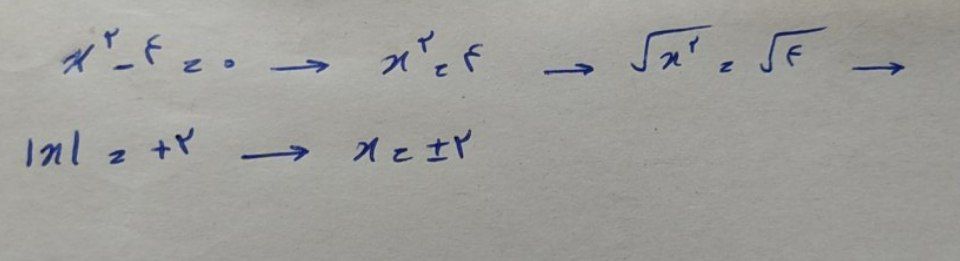 x^۲ - ۴ = ۰ → x^۲ = ۴ → √x^۲ = √۴ →
|x| = +۲ → x = ±۲